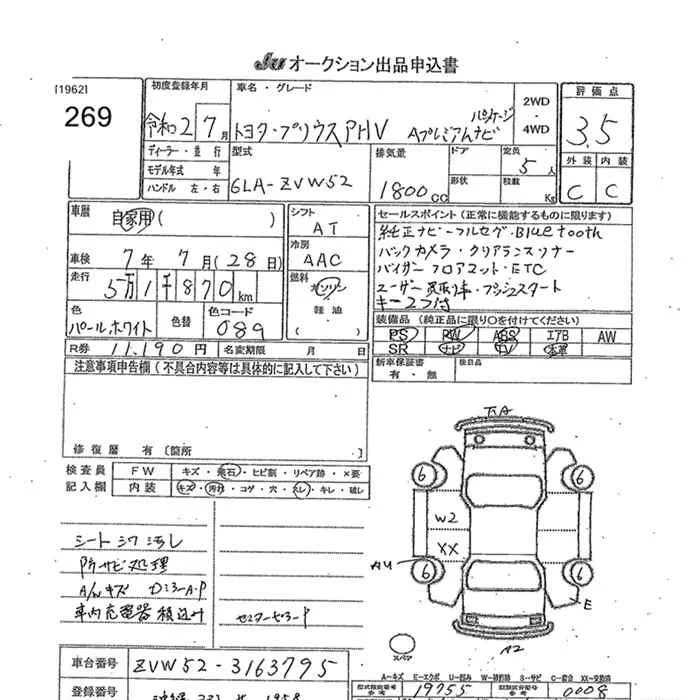 JU オークション出品申込書
[1962]
269
初度登録年月
令和 2 / 7 月
ディーラー・並行
モデル年式 年
ハンドル 左・右
車名・グレード
トヨタ・プリウスPHV Aプレミアムナビ
パッケージ
2WD
・
4WD
型式
6LA-ZVW52
排気量
1800cc
ドア
形状
定員
5人
積載
Kg
評価点
3.5
外装 内装
C C
車歴
自家用 ( )
車検 7年 7月 (28日)
走行
5万1千870km
色
パールホワイト
色替
色コード
089
シフト
AT
冷房
AAC
燃料
ガソリン
軽油
( )
セールスポイント (正常に機能するものに限ります)
純正ナビ・フルセグ・Bluetooth
バックカメラ・クリアランスソナー
バイザー フロアマット・ETC
ユーザー買取車・プッシュスタート
キー2つ付
装備品 (純正品に限り○を付けてください)
PS PW ABS エアB AW
SR ナビ TV 本革
新車保証書
有・無
後日品
R券 11,190円
名変期限 月 日
注意事項申告欄 (不具合内容等は具体的に記入して下さい)
修復歴 有 〔箇所 〕
検査員
記入欄
FW キズ・飛石・ヒビ割・リペア跡・×要
内装 キズ・汚れ・コゲ・穴・スレ・キレ・破レ
シート シワ 汚し
防サビ処理
A/wキズ DミラーA・P
車内充電器 積込み
センターピラーP
下A
6 6
W2
XX
A4
6 6
E
A2
スペア
A-キズ E-エクボ U-凹み W-補修跡 S-サビ C-腐食 XX-交換済
車台番号 ZVW52-3163795
登録番号
型式指定番号
参考
19755
類別区分番号
参考
0008